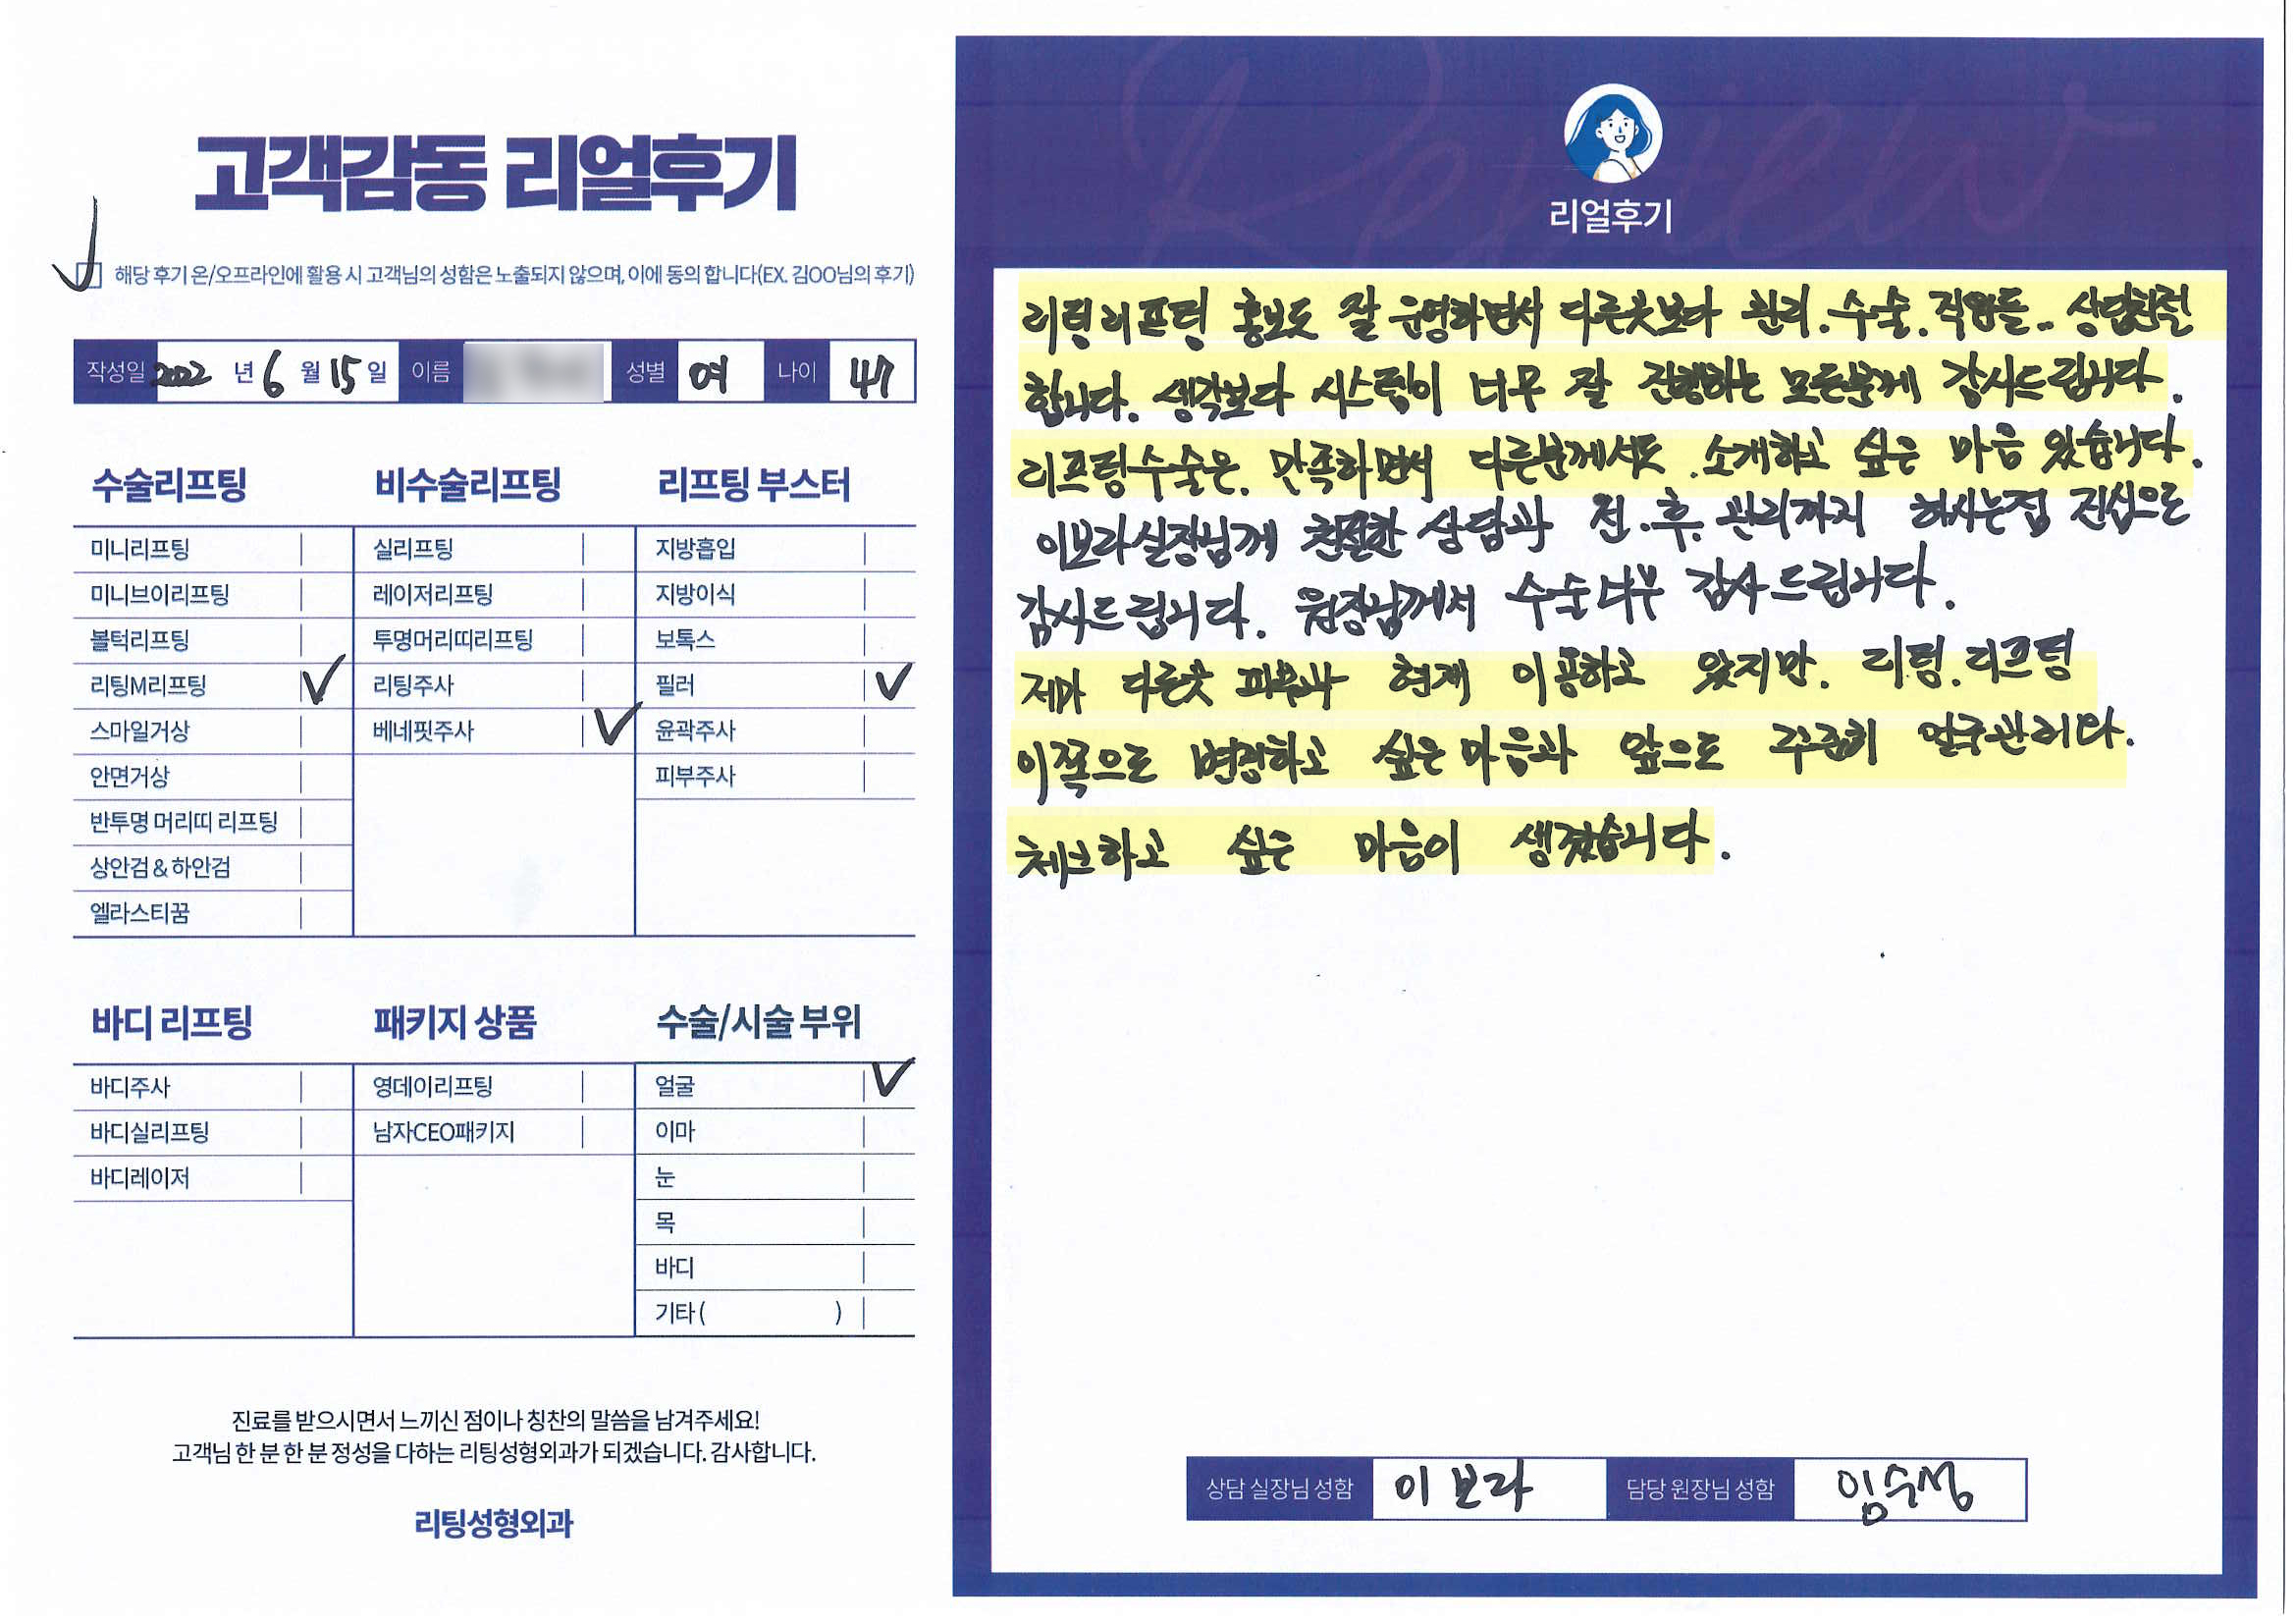 고객감동 리얼후기
해당 후기 온/오프라인에 활용 시 고객님의 성함은 노출되지 않으며, 이에 동의 합니다(EX. 김OO님의 후기)
작성일 2022 년 6 월 15 일 이름 성별 여 나이 47
수술리프팅
미니리프팅
미니브이리프팅
볼턱리프팅
리팅M리프팅
스마일거상
안면거상
반투명 머리띠 리프팅
상안검 & 하안검
엘라스티꿈
비수술리프팅
실리프팅
레이저리프팅
투명머리띠리프팅
리팅주사
베네핏주사
리프팅 부스터
지방흡입
지방이식
보톡스
필러
윤곽주사
피부주사
바디 리프팅
바디주사
바디실리프팅
바디레이저
패키지 상품
영데이리프팅
남자CEO패키지
수술/시술 부위
얼굴
이마
눈
목
바디
기타 ( )
진료를 받으시면서 느끼신 점이나 칭찬의 말씀을 남겨주세요!
고객님 한 분 한 분 정성을 다하는 리팅성형외과가 되겠습니다. 감사합니다.
리팅성형외과
Review
리얼후기
리팅리프팅 홍보도 잘 운영하면서 다른곳보다 관리. 수술. 직원들.. 상담친절
합니다. 생각보다 시스템이 너무 잘 진행하는 모든분께 감사드립니다.
리프팅수술은. 만족하면서 다른분께서도. 소개하고 싶은 마음 있습니다.
이보라실장님께 친절한 상담과 전.후. 관리까지 하시는점 진심으로
감사드립니다. 원장님께서 수술너무 감사드립니다.
제가 다른곳 피부과 현재 이용하고 있지만. 리팅.리프팅
이쪽으로 변경하고 싶은마음과 앞으로 꾸준히 얼굴관리와.
체크하고 싶은 마음이 생겼습니다.
상담 실장님 성함 이보라 담당 원장님 성함 임수성